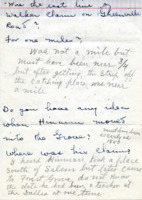 Was the east line of
Walker claim on Greenwell
Road?
For one mile?
Was not a mile but
must have been near 3/4
but after getting the strip off
the
was near
a mile.
Do you have any idea
when Hinman moved
into the Grove?
Where was his claim?
I heard Hinman took a place
South of Salem but later came
to Forest Grove, do not know
the date he had been a teacher at
the Dalles at one time.